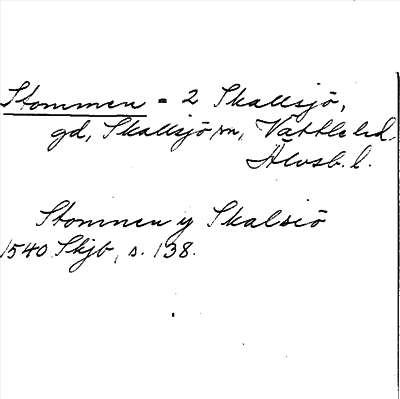 Stommen = 2 Skallsjö,
gd, Skallsjö sn, Vättle hd.
Älvsb. l.
Stomnen y Skalsiö
1540 Skjb, s. 138.